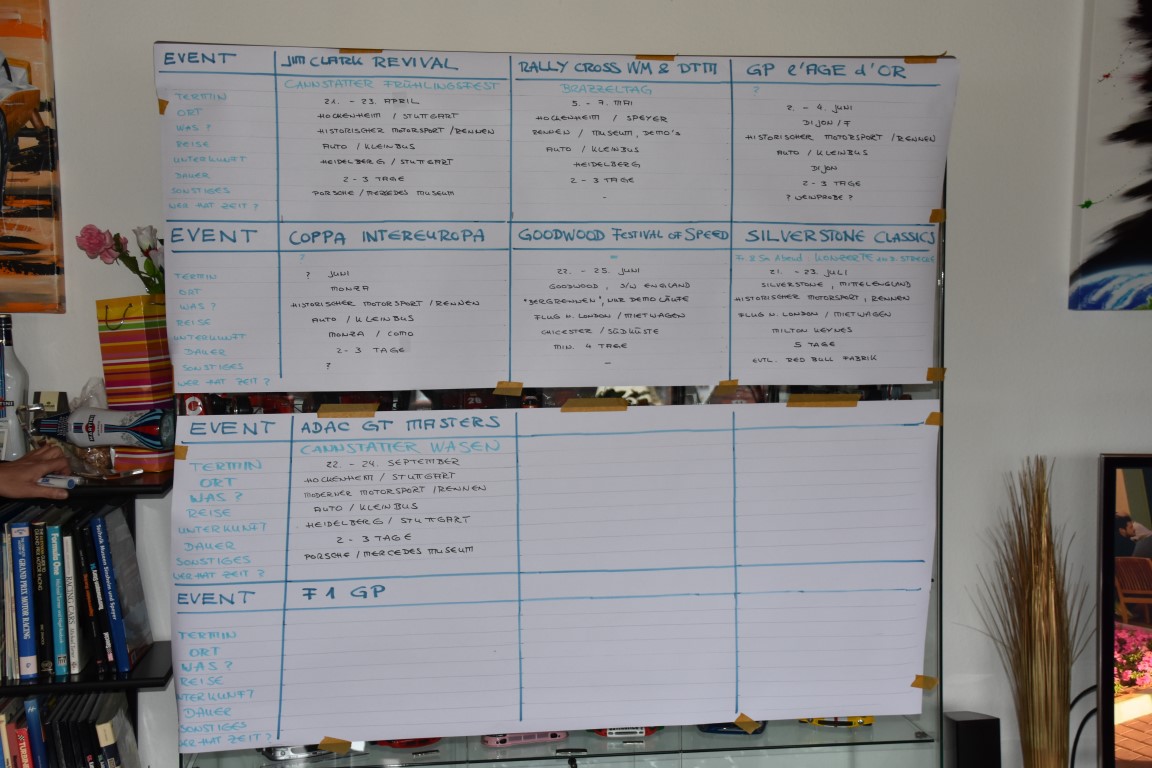 EVENT JIM CLARK REVIVAL RALLY CROSS WM & DTM GP l'AGE d'OR
CANNSTATTER FRÜHLINGSFEST BRAZZELTAG ?
TERMIN 21. - 23. APRIL 5. - 7. MAI 2. - 4. JUNI
ORT HOCKENHEIM / STUTTGART HOCKENHEIM / SPEYER DIJON / F
WAS ? HISTORISCHER MOTORSPORT / RENNEN RENNEN / MUSEUM, DEMO'S HISTORISCHER MOTORSPORT / RENNEN
REISE AUTO / KLEINBUS AUTO / KLEINBUS AUTO / KLEINBUS
UNTERKUNFT HEIDELBERG / STUTTGART HEIDELBERG DIJON
DAUER 2 - 3 TAGE 2 - 3 TAGE 2 - 3 TAGE
SONSTIGES PORSCHE / MERCEDES MUSEUM - ? WEINPROBE ?
WER HAT ZEIT ?
EVENT COPPA INTEREUROPA GOODWOOD FESTIVAL OF SPEED SILVERSTONE CLASSICS
? - Fr. & Sa Abend KONZERTE an d. STRECKE
TERMIN ? JUNI 22. - 25. JUNI 21. - 23. JULI
ORT MONZA GOODWOOD, S/W ENGLAND SILVERSTONE, MITTELENGLAND
WAS ? HISTORISCHER MOTORSPORT / RENNEN "BERGRENNEN", NUR DEMO LÄUFE HISTORISCHER MOTORSPORT, RENNEN
REISE AUTO / KLEINBUS FLUG N. LONDON / MIETWAGEN FLUG N. LONDON / MIETWAGEN
UNTERKUNFT MONZA / COMO CHICESTER / SÜDKÜSTE MILTON KEYNES
DAUER 2 - 3 TAGE MIN. 4 TAGE 5 TAGE
SONSTIGES ? - EVTL. RED BULL FABRIK
WER HAT ZEIT ?
EVENT ADAC GT MASTERS
CANNSTATTER WASEN
TERMIN 22. - 24. SEPTEMBER
ORT HOCKENHEIM / STUTTGART
WAS ? MODERNER MOTORSPORT / RENNEN
REISE AUTO / KLEINBUS
UNTERKUNFT HEIDELBERG / STUTTGART
DAUER 2 - 3 TAGE
SONSTIGES PORSCHE / MERCEDES MUSEUM
WER HAT ZEIT ?
EVENT F1 GP
TERMIN
ORT
WAS ?
REISE
UNTERKUNFT
DAUER
SONSTIGES
WER HAT ZEIT ?
GRAND PRIX MOTOR RACING
Formula One
RACING CARS
Technik Museen Sinsheim und Speyer